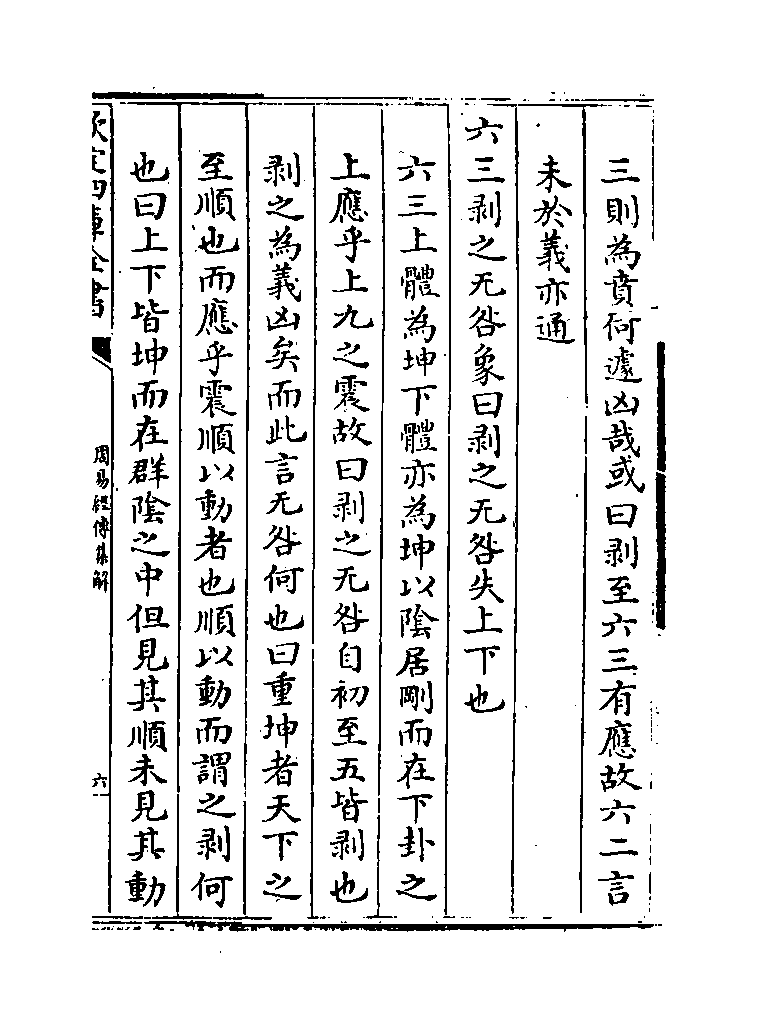 三則為賁何遽凶哉或曰剥至六三有應故六二言
未於義亦通
六三剥之无咎象曰剥之无咎失上下也
六三上體為坤下體亦為坤以陰居剛而在下卦之
上應乎上九之震故曰剥之无咎自初至五皆剥也
剥之為義凶矣而此言无咎何也曰重坤者天下之
至順也而應乎震順以動者也順以動而謂之剥何
也曰上下皆坤而在群陰之中但見其順未見其動
欽定四庫全書
周易經傳集解
六